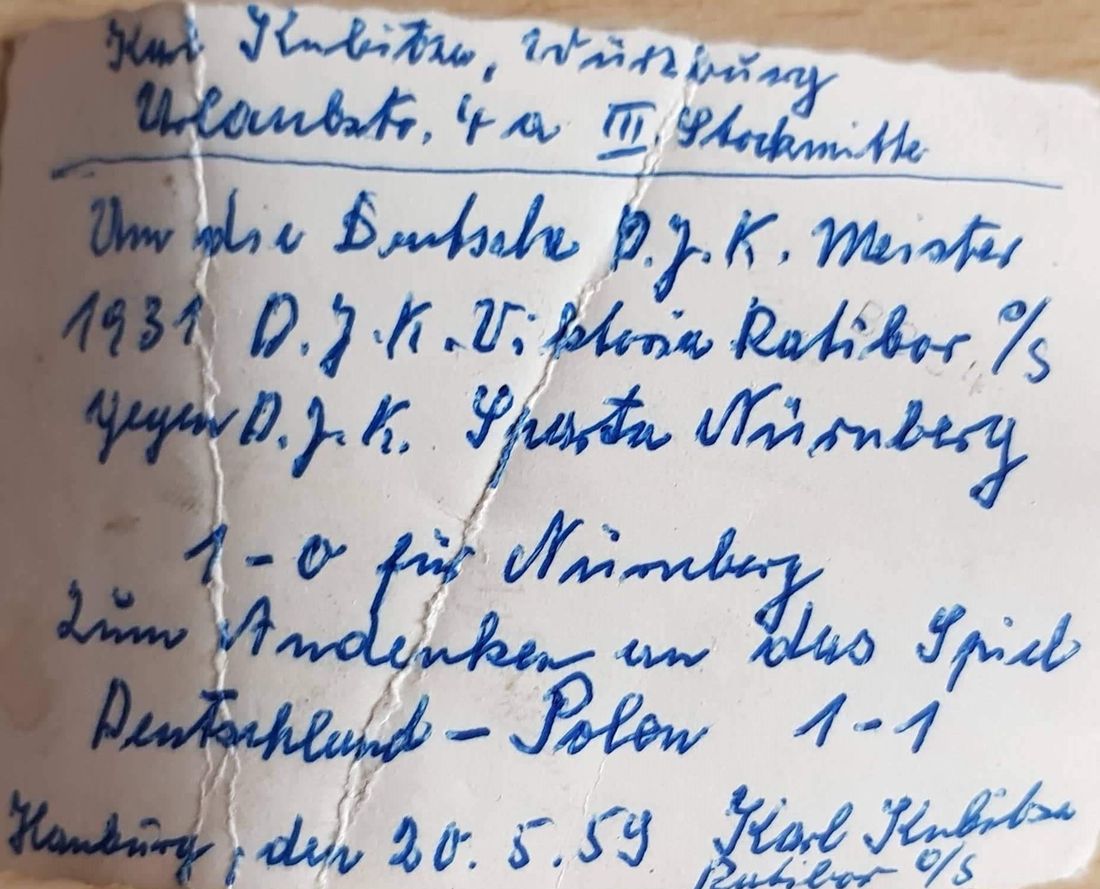 Karl Kubitza, Würzburg
Urlaubstr. 4 a III. Stockmitte
Um die Deutsche D.J.K. Meister
1931 D.J.K. Viktoria Ratibor O/S
gegen D.J.K. Sparta Nürnberg
1-0 für Nürnberg
Zum Andenken an das Spiel
Deutschland - Polen 1-1
Hamburg, den 20.5.59 Karl Kubitza
Ratibor O/S